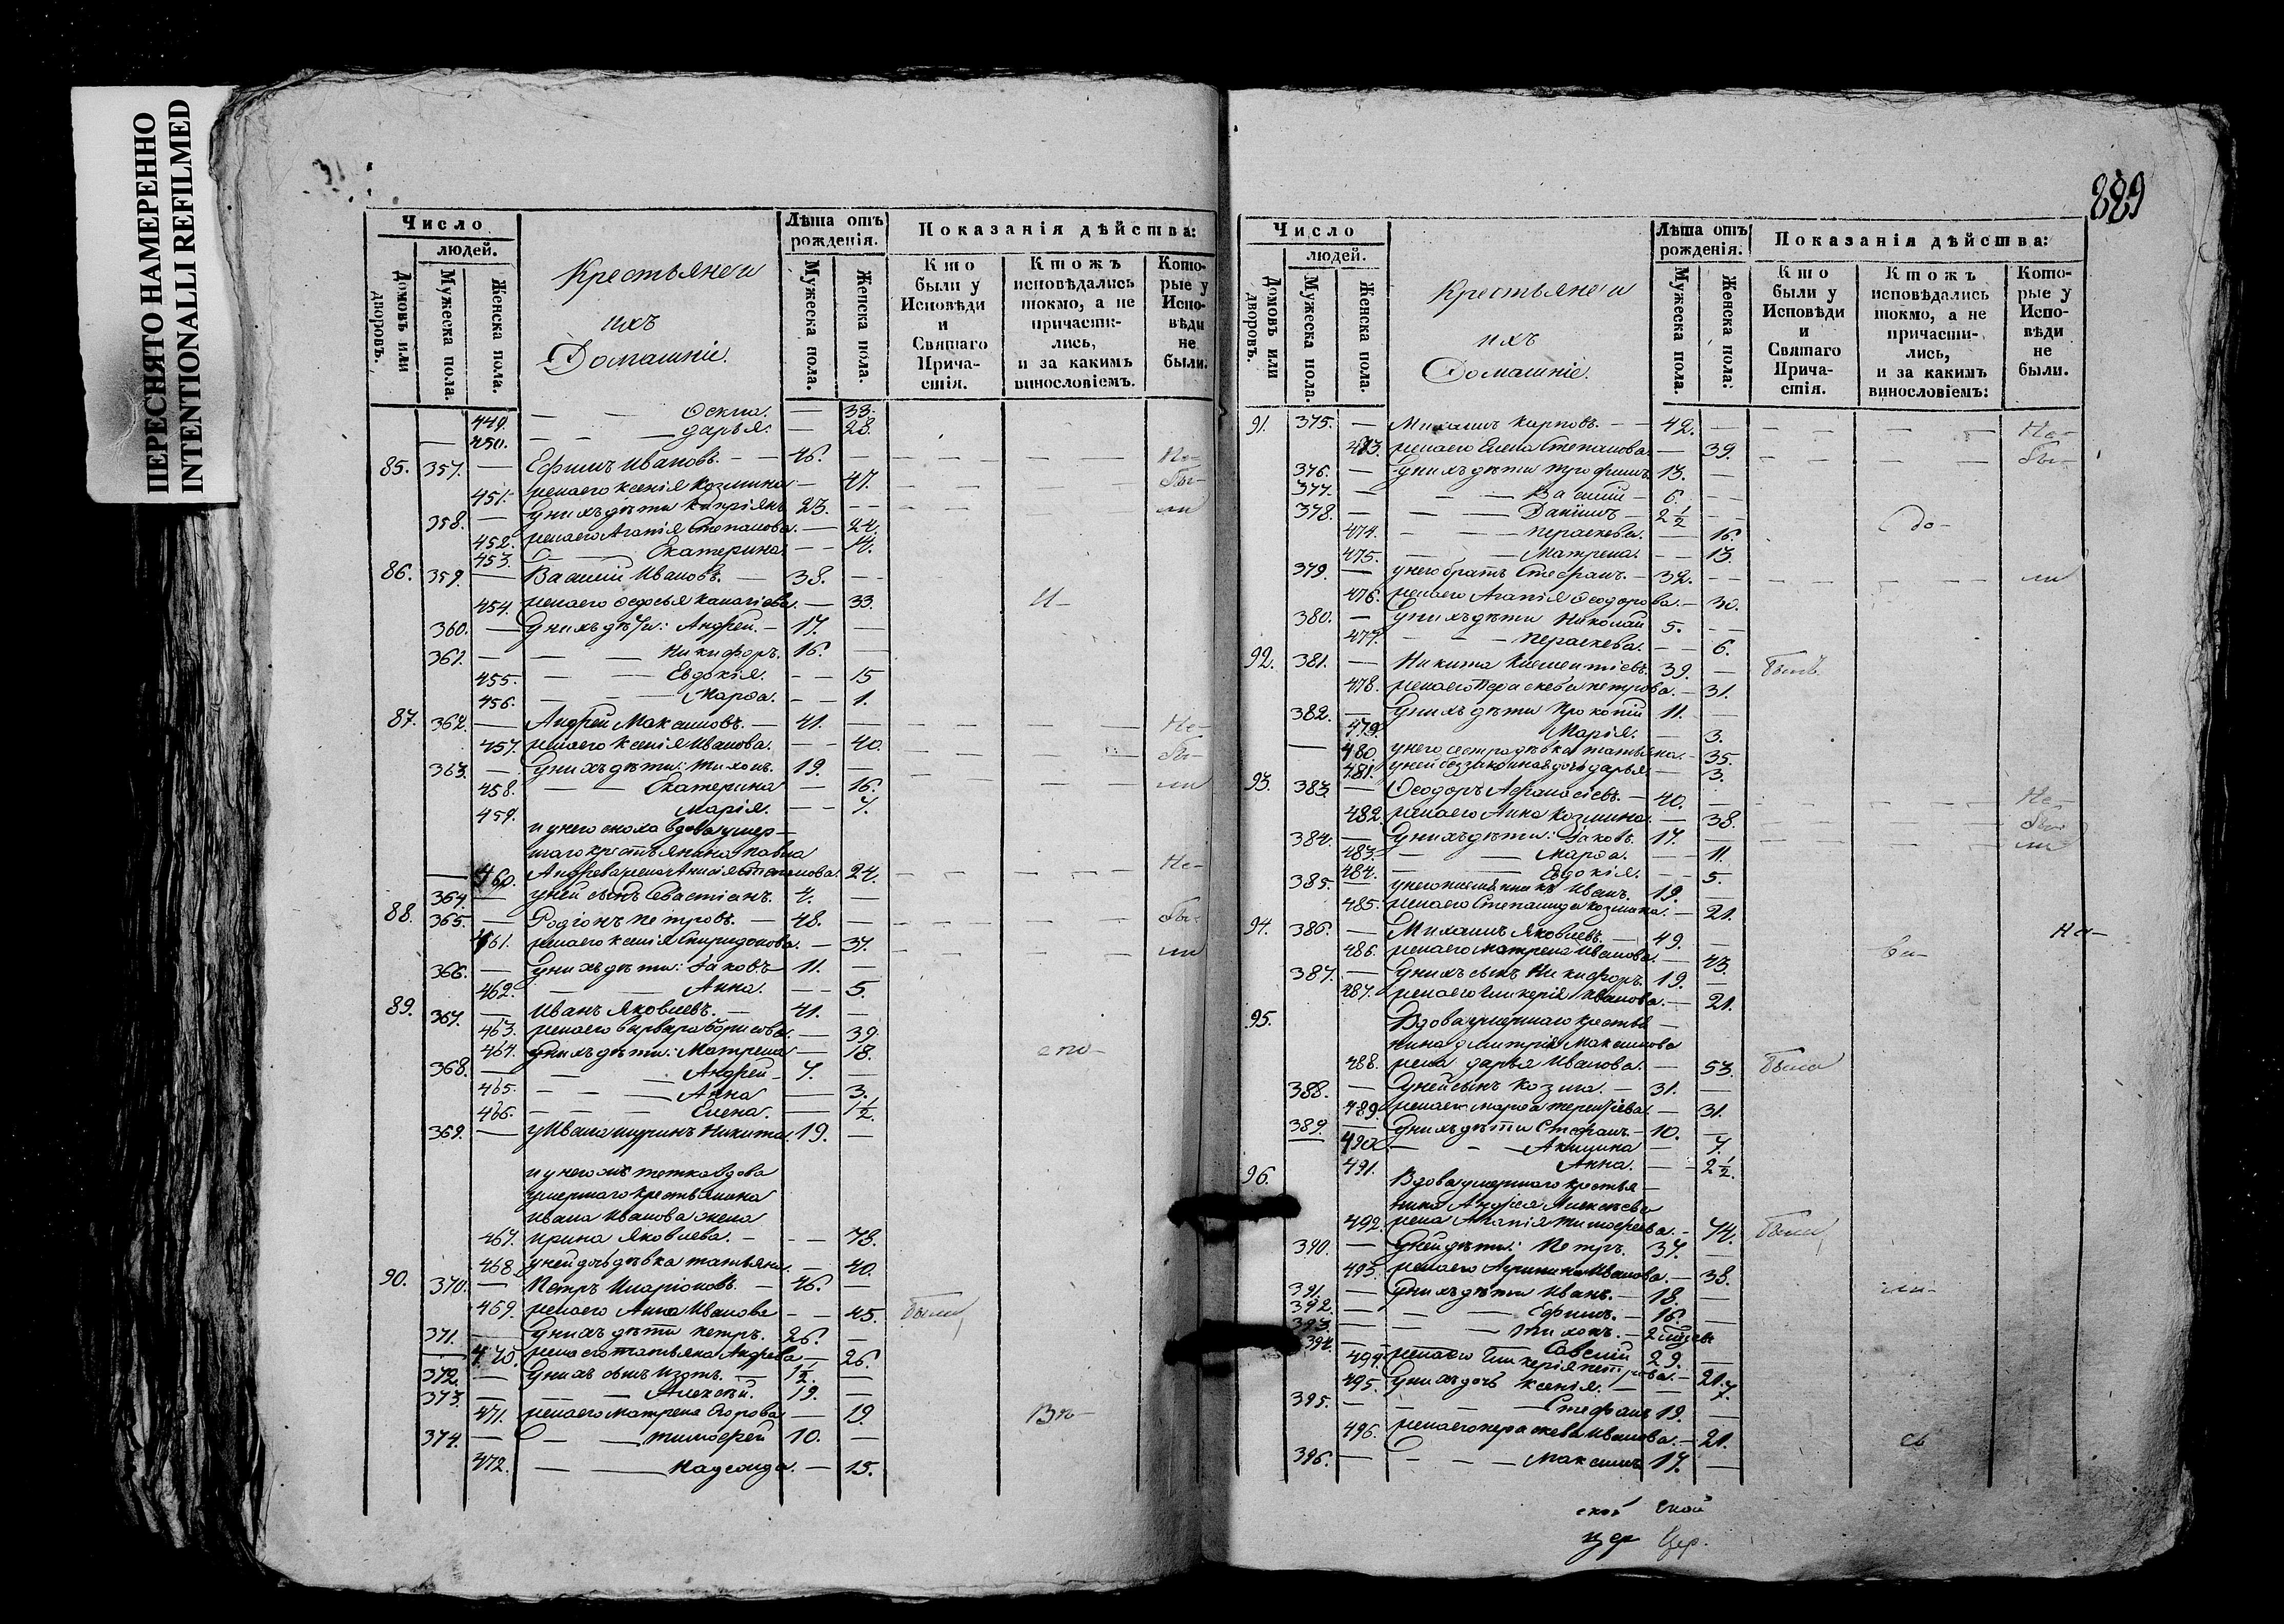 ПЕРЕСНЯТО НАМЕРЕННО
INTENTIONALLI REFILMED
889
Число
людей.
Домовъ или дворовъ.
Мужеска пола.
Женска пола.
Крестьяне и
ихъ
Домашніе.
Лѣта отъ рожденія.
Мужеска пола.
Женска пола.
Показанія дѣйства:
Кто были у Исповѣди и Святаго Причастія.
Ктожъ исповѣдались токмо, а не причастились, и за какимъ винословіемъ.
Которые у Исповѣди не были.
449. — — Ѳекла. — 33.
450. — — дарья. — 28.
85. 357. — Ефимъ Ивановъ. — 46. — Не-
451. жена его ксенія козмина — 47. бы-
358. — у нихъ дѣти кипріянъ 23. — ли
452. жена его Агапія Степанова. — 24.
453. — — Екатерина — 14.
86. 359. — Василій Ивановъ. — 38. —
454. жена его — 33. И-
360. — у нихъ дѣти: Андрей. — 17. —
361. — — Никифоръ. 16. —
455. — — Евдокія. — 15
456. — — Марѳа. — 1.
87. 362. — Андрей Максимовъ. — 41. — Не-
457. жена его ксенія Иванова. — 40. бы-
363. — у нихъ дѣти: тихонъ. 19. — ли
458. — — Екатерина — 16.
459. Марія. — 7.
и у него сноха вдова умер-
шаго крестьянина павла
460. Андреева жена Степанова. 24. Не-
364. — у ней сынъ Севастіанъ. 4. —
88. 365. — Родіонъ петровъ. — 48. — бы-
461. жена его ксенія Спиридонова. — 37. ли
366. — у нихъ дѣти: Іаковъ 11. —
462. — — Анна. — 5.
89. 367. — Иванъ Яковлевъ. — 41. —
463. жена его варвара борисова. — 39.
464. у нихъ дѣти: Матрена — 18. спо-
368. — — Андрей — 7. —
465. — — Анна — 3.
466. — — Елена. — 1½
369. — у Ивана шуринъ Никита 19. —
и у него же тетка вдова
умершаго крестьянина
Ивана Иванова жена
467. ирина Яковлева. — 78.
468. у ней дочь дѣвка татьяна. — 40.
90. 370. — Петръ Иларіоновъ. — 46. —
469. жена его Анна Иванова — 45. были
371. — у нихъ дѣти петръ. 26. —
470. жена его татьяна Андреева — 26.
372. — у нихъ сынъ Изотъ. — 1½. —
373. — — Алексѣй. 19. —
471. жена его матрена Егорова — 19. Вѣ-
374. — — тимоѳей 10. —
472. — — Надежда. — 15.
Число
людей.
Домовъ или дворовъ.
Мужеска пола.
Женска пола.
Крестьяне и
ихъ
Домашніе.
Лѣта отъ рожденія.
Мужеска пола.
Женска пола:
Показанія дѣйства:
Кто были у Исповѣди и Святаго Причастія.
Ктожъ исповѣдались токмо, а не причастились, и за какимъ винословіемъ:
Которые у Исповѣди не были.
91. 375. — Михаилъ карповъ. — 42. — Не-
473. жена его Елена Степанова. — 39. бы-
376. — у нихъ дѣти трофимъ. 13. —
377. — — Василій — 6. —
378. — — Даніилъ — 2½ — до-
474. — — параскева. — 16.
475. — — Матрена. — 13.
379. — у него братъ Стефанъ. — 32. — ли
476. жена его Агапія Ѳеодорова. — 30.
380. — у нихъ дѣти Николай 5. —
477. — — параскева. — 6.
92. 381. — Никита Климентіевъ. 39. — былъ
478. жена его Параскева петрова. — 31.
382. — у нихъ дѣти Прокопій 11. —
479. Марія. — 3.
480. у него сестра дѣвка татьяна. — 35.
481. у ней беззаконная дочь дарья — 3.
93. 383. — Ѳеодоръ Аѳанасіевъ. — 40. — Не-
482. жена его Анна козмина. — 38. бы-
384. — у нихъ дѣти: Іаковъ. 17. — ли
483. — — Марѳа. — 11.
484. — — Евдокія. — 5.
385. — у него племянникъ Иванъ. 19. —
485. жена его Степанида козмина. — 21.
94. 386. — Михаилъ Яковлевъ. — 49. —
486. жена его матрена Иванова. — 43.
387. — у нихъ сынъ Никифоръ. 19. —
487. жена его Гликерія Иванова. — 21.
95. Вдова умершаго крестья-
нина димитрія Максимова
488. жена дарья Иванова. — 53. была
388. — у ней сынъ козма. — 31. —
489. жена его марѳа терентіева. — 31.
389. — у нихъ дѣти Стефанъ — 10. —
490. — — Акилина — 7.
491. Анна. — 2½.
96. Вдова умершаго крестья-
нина Андрея Алексѣева
492. жена Агапія тимоѳеева. — 74. были
390. — у ней дѣти: Петръ. 37. —
493. жена его Иванова. — 38.
391. — у нихъ дѣти Иванъ. — 18. — ли-
392. — — Ефимъ. — 16. —
393. — — тихонъ. — 2
394. — — Савелій 29. —
494. жена его Гликерія петрова. — 21.
495. у нихъ дочь ксенія. — 7.
395. — — Стефанъ 19. —
496. жена его параскева Иванова. — 21. сь
396. — — Максимъ 17. —
ской ской
цер Цер.